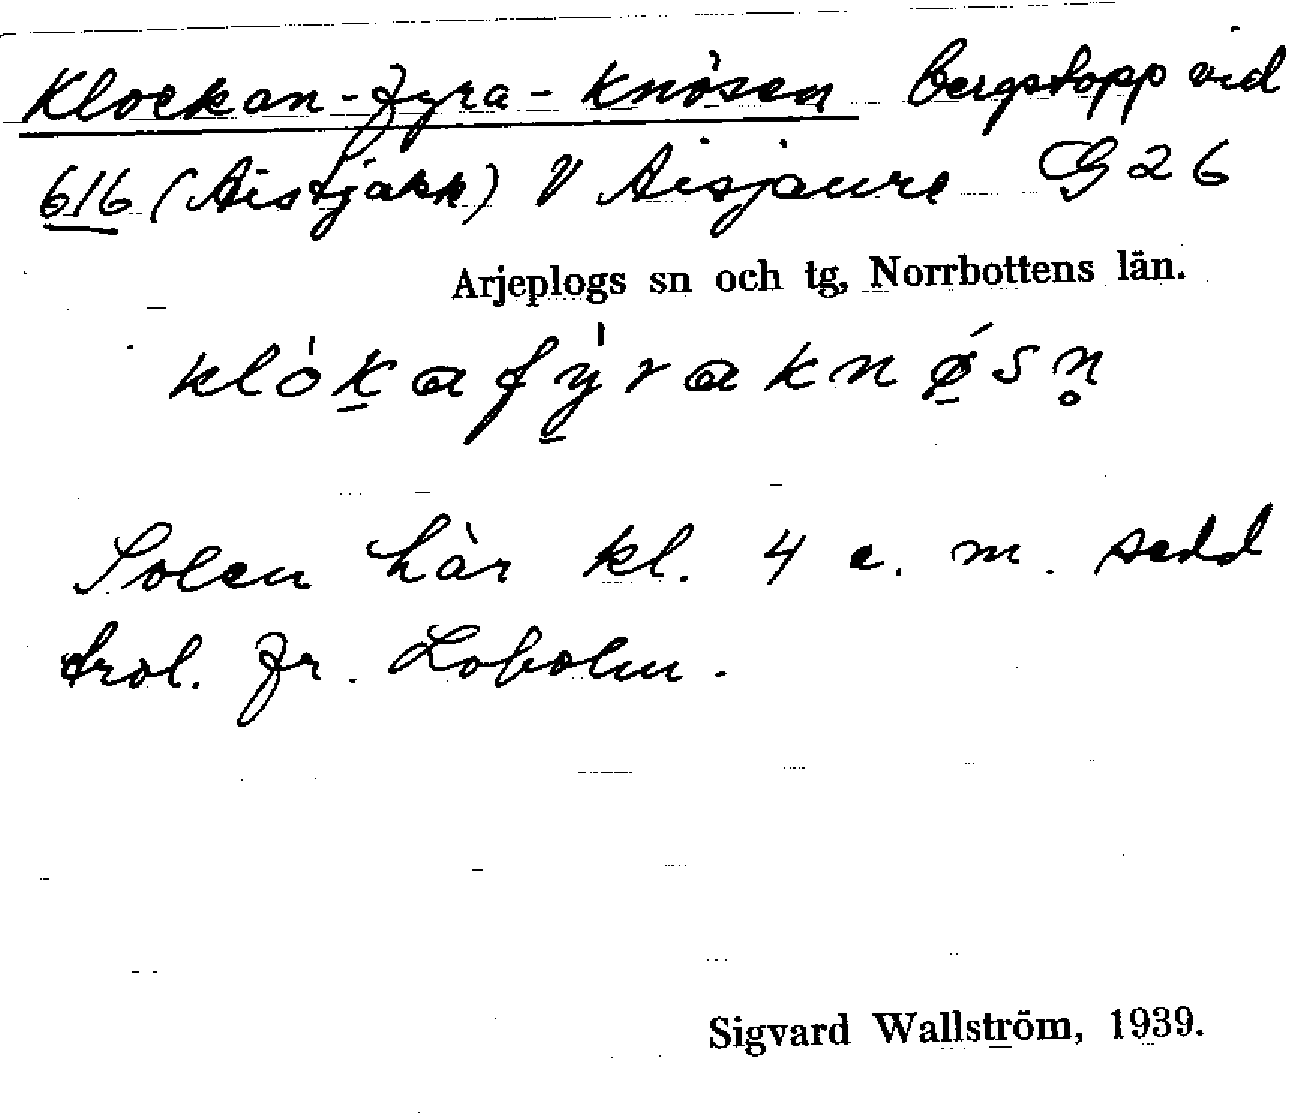 Klockan-fyra-knösen bergstopp vid
616 (Aistjakk) V Aisjaure G26
Arjeplogs sn och tg, Norrbottens län.
klòkafỳraknǿsn̥
Solen här kl. 4 e. m. sedd
trol. fr. Loholm.
Sigvard Wallström, 1939.